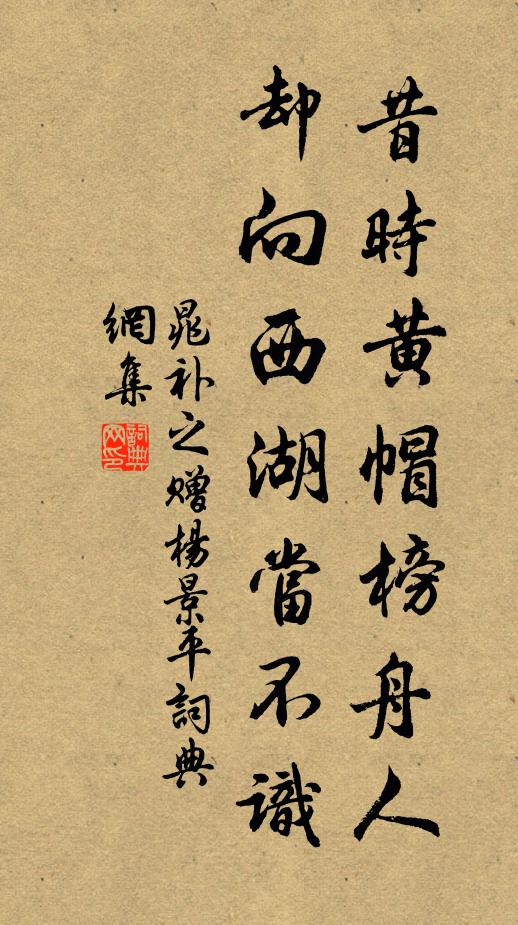 昔時黄帽榜舟人
却向西湖當不識
晁补之赠楊景平詞典
網集
詞典
网印